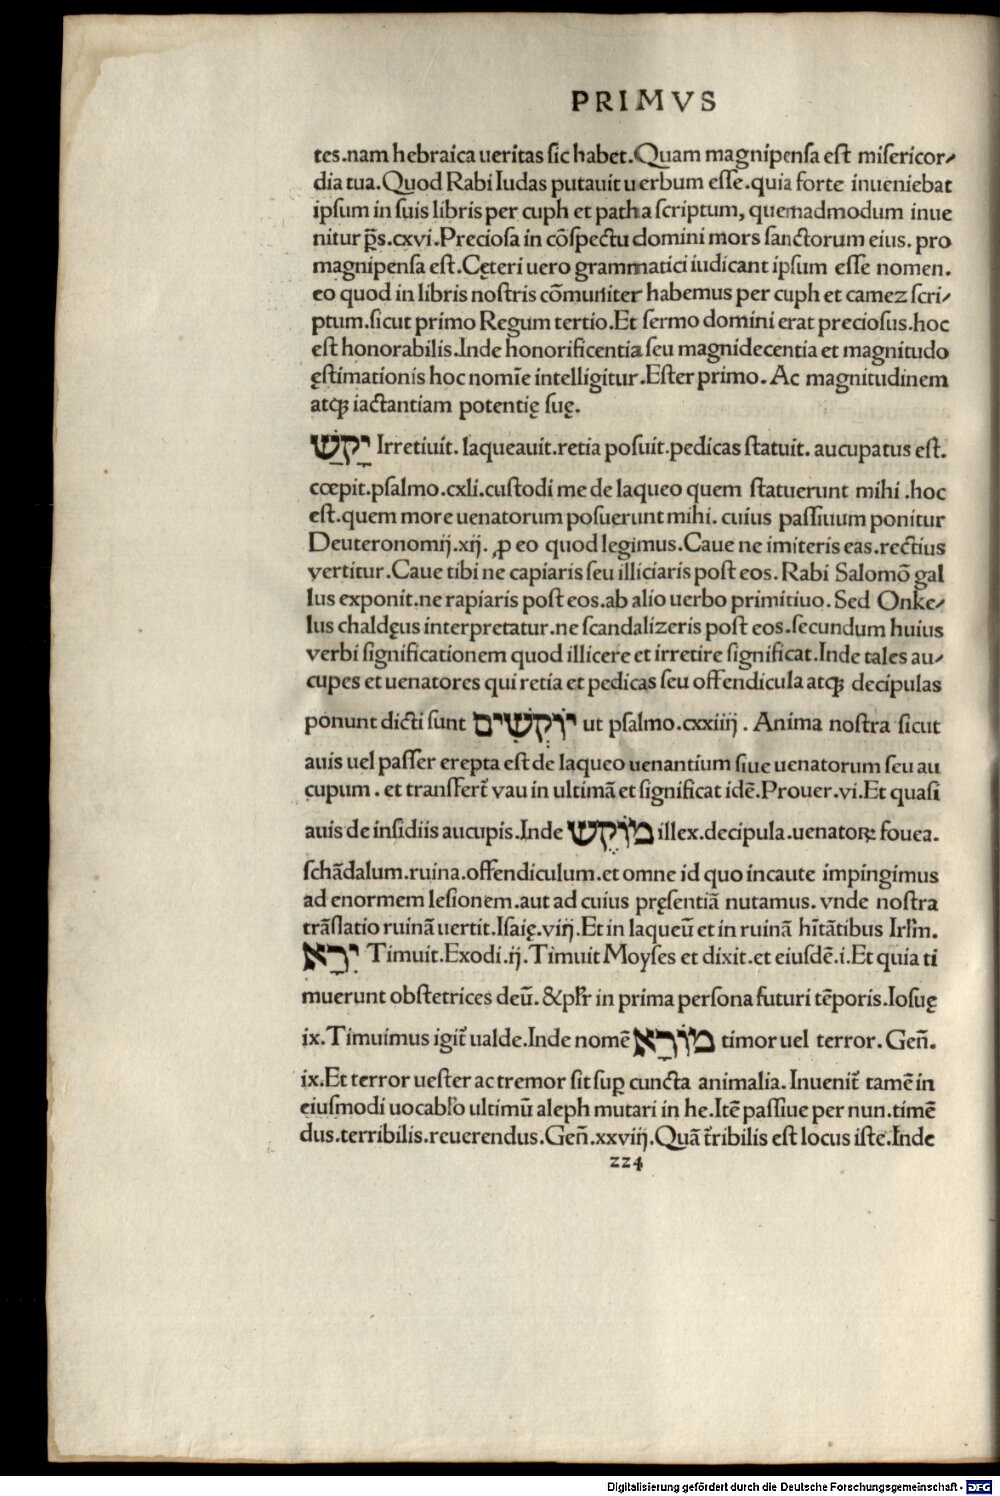 PRIMVS
tes.nam hebraica ueritas sic habet.Quam magnipensa est misericor⸗
dia tua.Quod Rabi Iudas putauit uerbum esse.quia forte inueniebat
ipsum in suis libris per cuph et patha scriptum, quemadmodum inue
nitur p̄s.cxvi.Preciosa in cōspectu domini mors sanctorum eius. pro
magnipensa est.Cęteri uero grammatici iudicant ipsum esse nomen.
eo quod in libris nostris cōmuniter habemus per cuph et camez scri⸗
ptum.sicut primo Regum tertio.Et sermo domini erat preciosus.hoc
est honorabilis.Inde honorificentia seu magnidecentia et magnitudo
ęstimationis hoc nomīe intelligitur.Ester primo. Ac magnitudinem
atqꝫ iactantiam potentię suę.
יָקַשׁ Irretiuit. laqueauit.retia posuit.pedicas statuit. aucupatus est.
cœpit.psalmo.cxli.custodi me de laqueo quem statuerunt mihi .hoc
est.quem more uenatorum posuerunt mihi. cuius passiuum ponitur
Deuteronomij.xij. ꝓ eo quod legimus.Caue ne imiteris eas.rectius
vertitur.Caue tibi ne capiaris seu illiciaris post eos. Rabi Salomō gal
lus exponit.ne rapiaris post eos.ab alio uerbo primitiuo. Sed Onke⸗
lus chaldęus interpretatur.ne scandalizeris post eos.secundum huius
verbi significationem quod illicere et irretire significat.Inde tales au⸗
cupes et uenatores qui retia et pedicas seu offendicula atqꝫ decipulas
ponunt dicti sunt יוֹקְשִׁים ut psalmo.cxxiiij . Anima nostra sicut
auis uel passer erepta est de laqueo uenantium siue uenatorum seu au
cupum . et transfert̄ vau in ultimā et significat idē.Prouer.vi.Et quasi
auis de insidiis aucupis.Inde מוֹקֵשׁ illex.decipula.uenatoꝝ fouea.
schādalum.ruina.offendiculum.et omne id quo incaute impingimus
ad enormem lesionem.aut ad cuius pręsentiā nutamus. vnde nostra
trāslatio ruinā uertit.Isaię.viij.Et in laqueū et in ruinā hītātibus Irlm̄.
יָרֵא Timuit.Exodi.ij.Timuit Moyses et dixit.et eiusdē.i.Et quia ti
muerunt obstetrices deū. &plr̄ in prima persona futuri tēporis.Iosuę
ix.Timuimus igit̄ ualde.Inde nomē מוֹרָא timor uel terror. Geñ.
ix.Et terror uester ac tremor sit suꝑ cuncta animalia. Inuenit̄ tamē in
eiusmodi uocabl̄o ultimū aleph mutari in he.Itē passiue per nun.timē
dus.terribilis.reuerendus.Geñ.xxviij.Quā t̄ribilis est locus iste.Inde
224
Digitalisierung gefördert durch die Deutsche Forschungsgemeinschaft - DFG